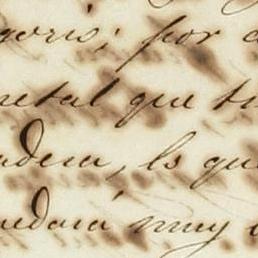 goris; por
metal que
dera, ls que
edará muy